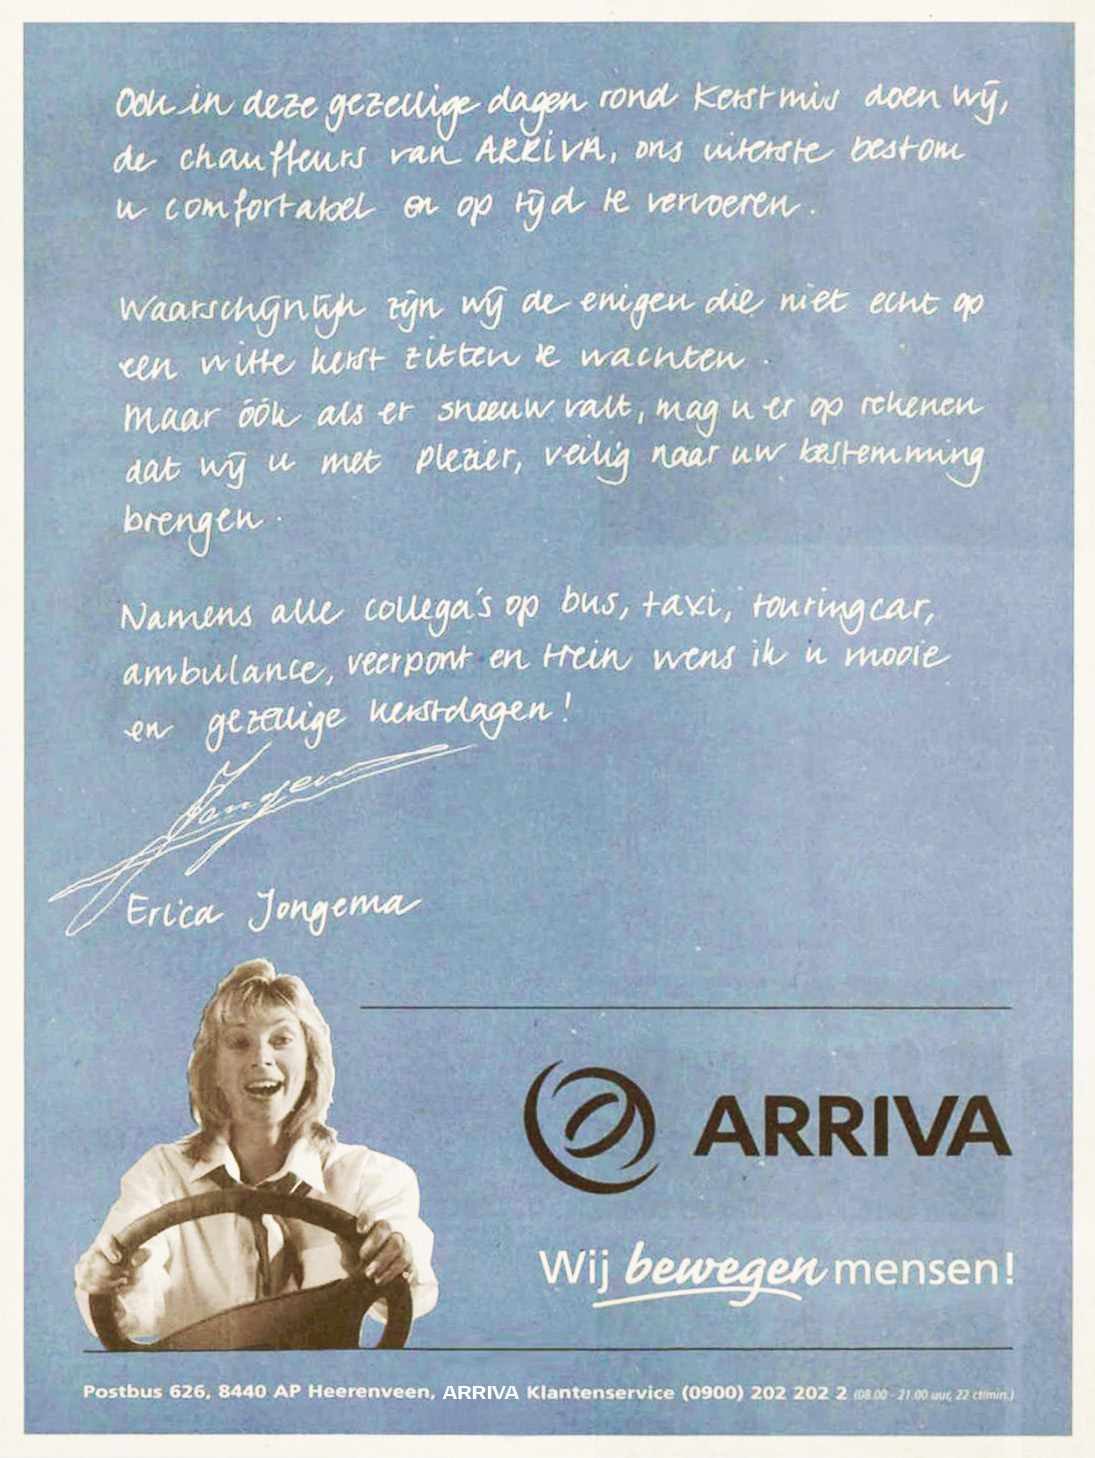 Ook in deze gezellige dagen rond Kerstmis doen wij,
de chauffeurs van ARRIVA, ons uiterste best om
u comfortabel en op tijd te vervoeren.
Waarschijnlijk zijn wij de enigen die niet echt op
een witte kerst zitten te wachten.
Maar óók als er sneeuw valt, mag u er op rekenen
dat wij u met plezier, veilig naar uw bestemming
brengen.
Namens alle collega's op bus, taxi, touringcar,
ambulance, veerpont en trein wens ik u mooie
en gezellige kerstdagen!
Jongema
Erica Jongema
ARRIVA
Wij bewegen mensen!
Postbus 626, 8440 AP Heerenveen, ARRIVA Klantenservice (0900) 202 202 2 (08.00 - 21.00 uur, 22 ct/min.)